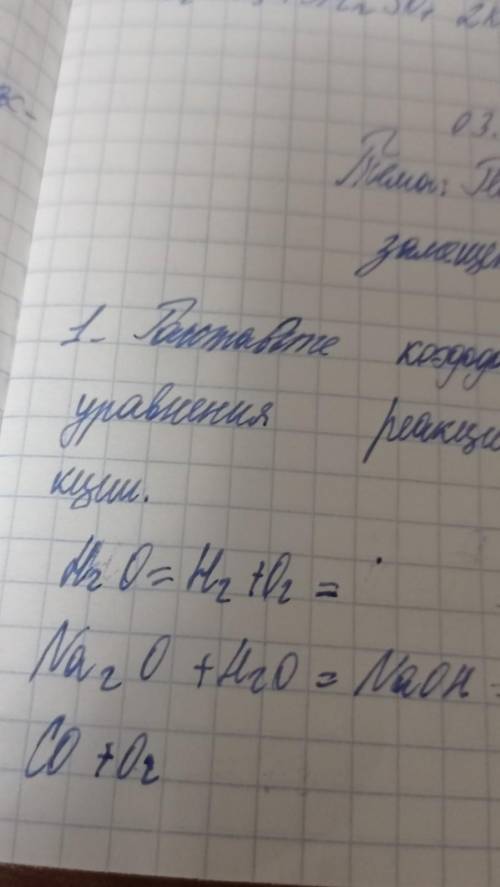 03.
Тема:
замещ
1. Расставьте коэфф
уравнения реакци
кции.
H₂O = H₂ + O₂ =
Na₂O + H₂O = NaOH =
CO + O₂